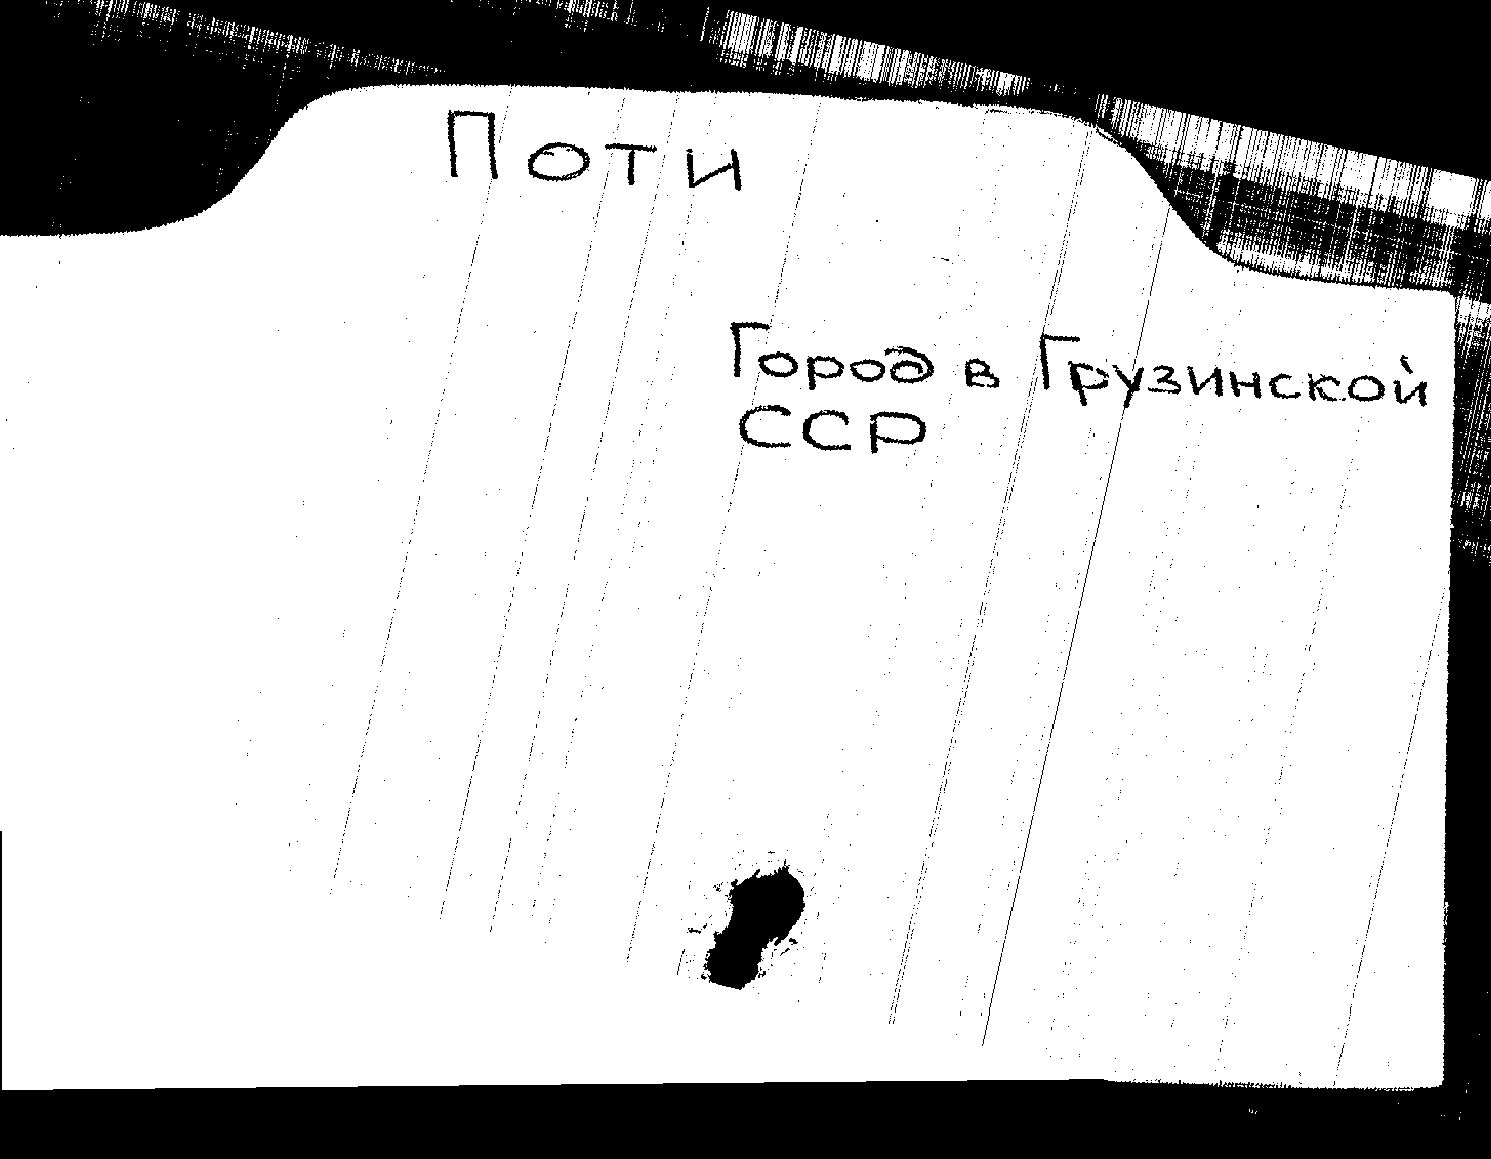 Поти
Город в Грузинской
ССР